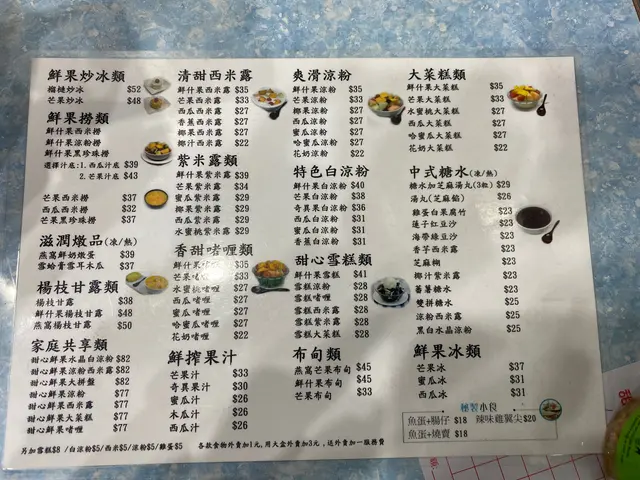 鮮果炒冰類
榴槤炒冰 $52
芒果炒冰 $48
鮮果撈類
鮮什果西米撈
鮮什果涼粉撈
鮮什果黑珍珠撈
選擇汁底:1.西瓜汁底 $39
2.芒果汁底 $43
芒果西米撈 $37
西瓜西米撈 $32
芒果黑珍珠撈 $37
滋潤燉品(凍/熱)
燕窩鮮奶燉蛋 $39
雪蛤膏雪耳木瓜 $37
楊枝甘露類
楊枝甘露 $38
鮮什果楊枝甘露 $48
燕窩楊枝甘露 $50
家庭共享類
甜心鮮果水晶白涼粉 $82
甜心鮮果涼粉西米露 $82
甜心鮮果大拼盤 $82
甜心鮮果涼粉 $77
甜心鮮果西米露 $77
甜心鮮果大菜糕 $77
甜心鮮果啫喱 $77
清甜西米露
鮮什果西米露 $35
芒果西米露 $33
西瓜西米露 $27
香蕉西米露 $27
椰果西米露 $27
椰汁西米露 $22
紫米露類
鮮什果紫米露 $39
芒果紫米露 $34
蜜瓜紫米露 $29
椰果紫米露 $29
西瓜紫米露 $29
水蜜桃紫米露 $29
香甜啫喱類
鮮什果啫喱 $35
芒果啫喱 $33
水蜜桃啫喱 $27
西瓜啫喱 $27
蜜瓜啫喱 $27
哈蜜瓜啫喱 $27
花奶啫喱 $22
鮮搾果汁
芒果汁 $33
奇異果汁 $30
蜜瓜汁 $26
木瓜汁 $26
西瓜汁 $26
爽滑涼粉
鮮什果涼粉 $35
芒果涼粉 $33
椰果涼粉 $27
西瓜涼粉 $27
蜜瓜涼粉 $27
哈蜜瓜涼粉 $27
花奶涼粉 $22
特色白涼粉
鮮什果白涼粉 $40
芒果白涼粉 $38
奇異果白涼粉 $36
西瓜白涼粉 $31
蜜瓜白涼粉 $31
香蕉白涼粉 $31
甜心雪糕類
鮮什果雪糕 $41
雪糕涼粉 $28
雪糕啫喱 $28
雪糕西米露 $28
雪糕紫米露 $28
雪糕大菜糕 $28
布甸類
燕窩芒果布甸 $45
鮮什果布甸 $45
芒果布甸 $33
大菜糕類
鮮什果大菜糕 $35
芒果大菜糕 $33
水蜜桃大菜糕 $27
西瓜大菜糕 $27
哈蜜瓜大菜糕 $27
花奶大菜糕 $21
中式糖水(凍/熱)
糖水加芝麻湯丸(3粒) $29
湯丸(芝麻餡) $26
雞蛋白果腐竹 $23
蓮子紅豆沙 $23
海帶綠豆沙 $23
香芋西米露 $23
芝麻糊 $23
椰汁紫米露 $23
蕃薯糖水 $23
雙拼糖水 $23
涼粉西米露 $25
黑白水晶涼粉 $25
鮮果冰類
芒果冰 $37
蜜瓜冰 $31
西瓜冰 $31
秘製小食
魚蛋+腸仔 $18 辣味雞翼尖 $20
魚蛋+燒賣 $18
另加雪糕$8 /白涼粉$5/西米$5/涼粉$5/雞蛋$5 各款食物外賣加1元,用大盒外賣加3元,送外賣加一服務費